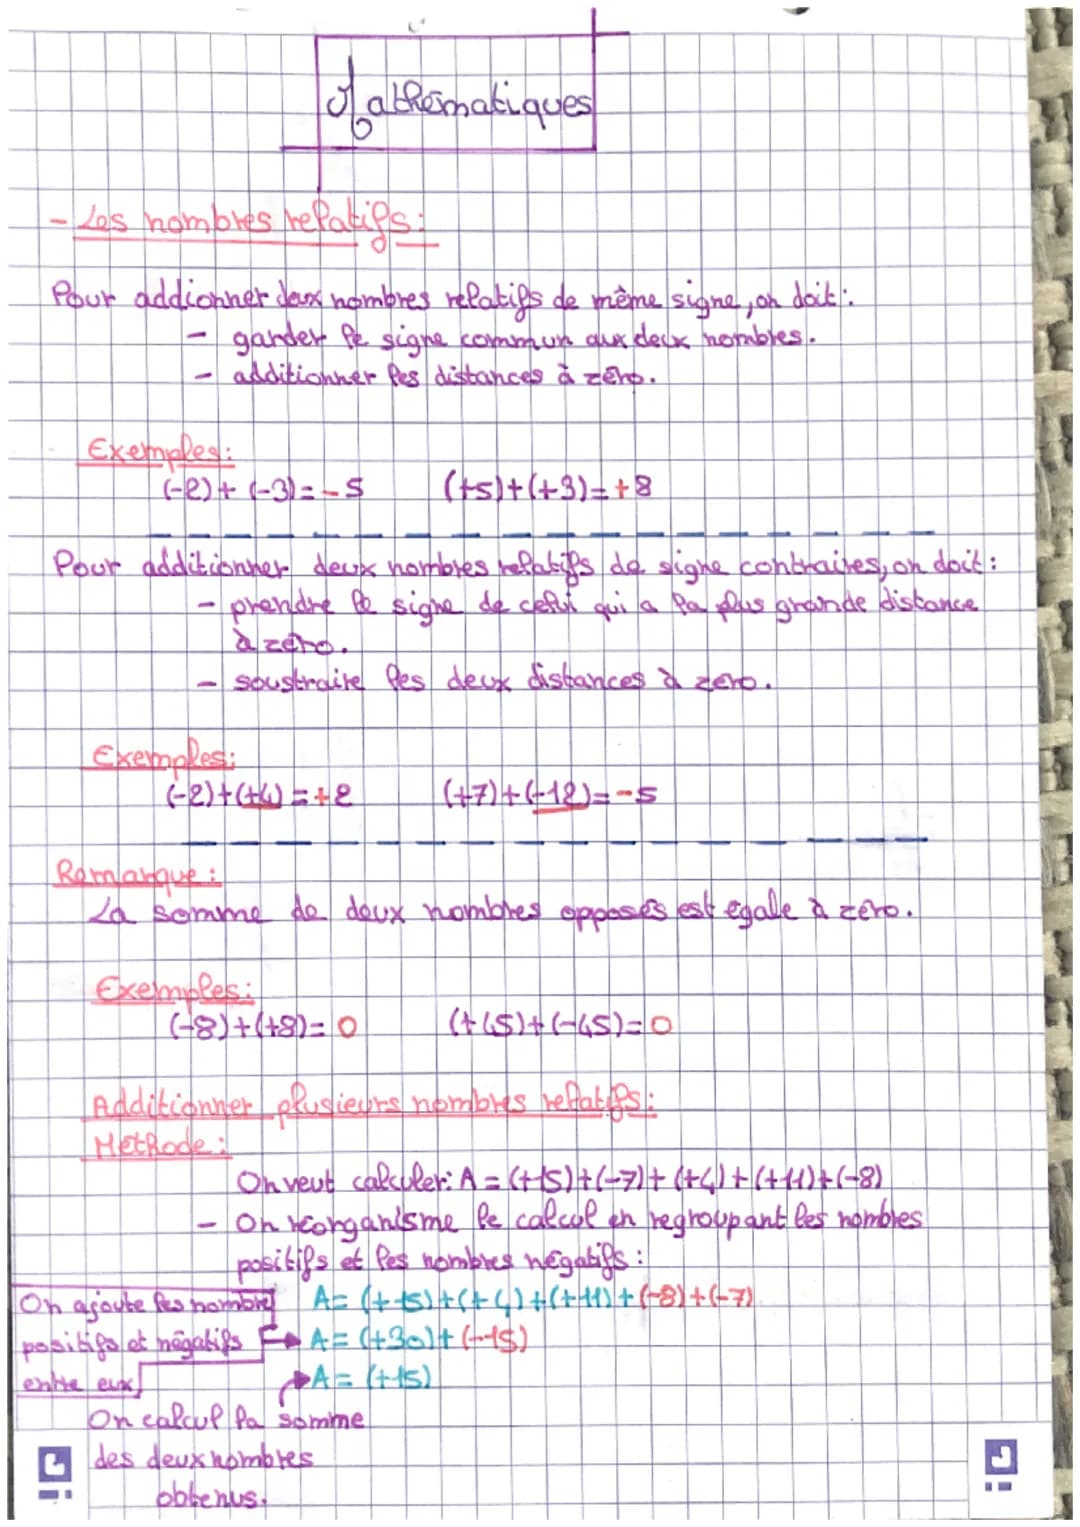 Mathématiques
- Les nombres relatifs:
Pour addionner deux nombres relatifs de même signe, on doit:
- garder le signe commun aux deux nombres.
- additionner les distances à zéro.
Exemples:
(-2)+(-3)=-5 (+5)+(+3)=+8
Pour additionner deux nombres relatifs de signe contraires, on doit:
- prendre le signe de celui qui a la plus grande distance
à zéro.
- soustraire les deux distances à zéro.
Exemples:
(-2)+(+4)=+2 (+7)+(-12)=-5
Remarque:
La somme de deux nombres opposés est égale à zéro.
Exemples:
(-8)+(+8)=0 (+45)+(-45)=0
Additionner plusieurs nombres relatifs:
Méthode:
On veut calculer: A = (+15)+(-7)+(+4)+(+11)+(-8)
- On réorganisme le calcul en regroupant les nombres
positifs et les nombres négatifs:
On ajoute les nombres A= (+15)+(+4)+(+11)+(-8)+(-7)
positifs et négatifs A= (+30)+(-15)
entre eux A= (+15)
On calcul la somme
des deux nombres
obtenus.